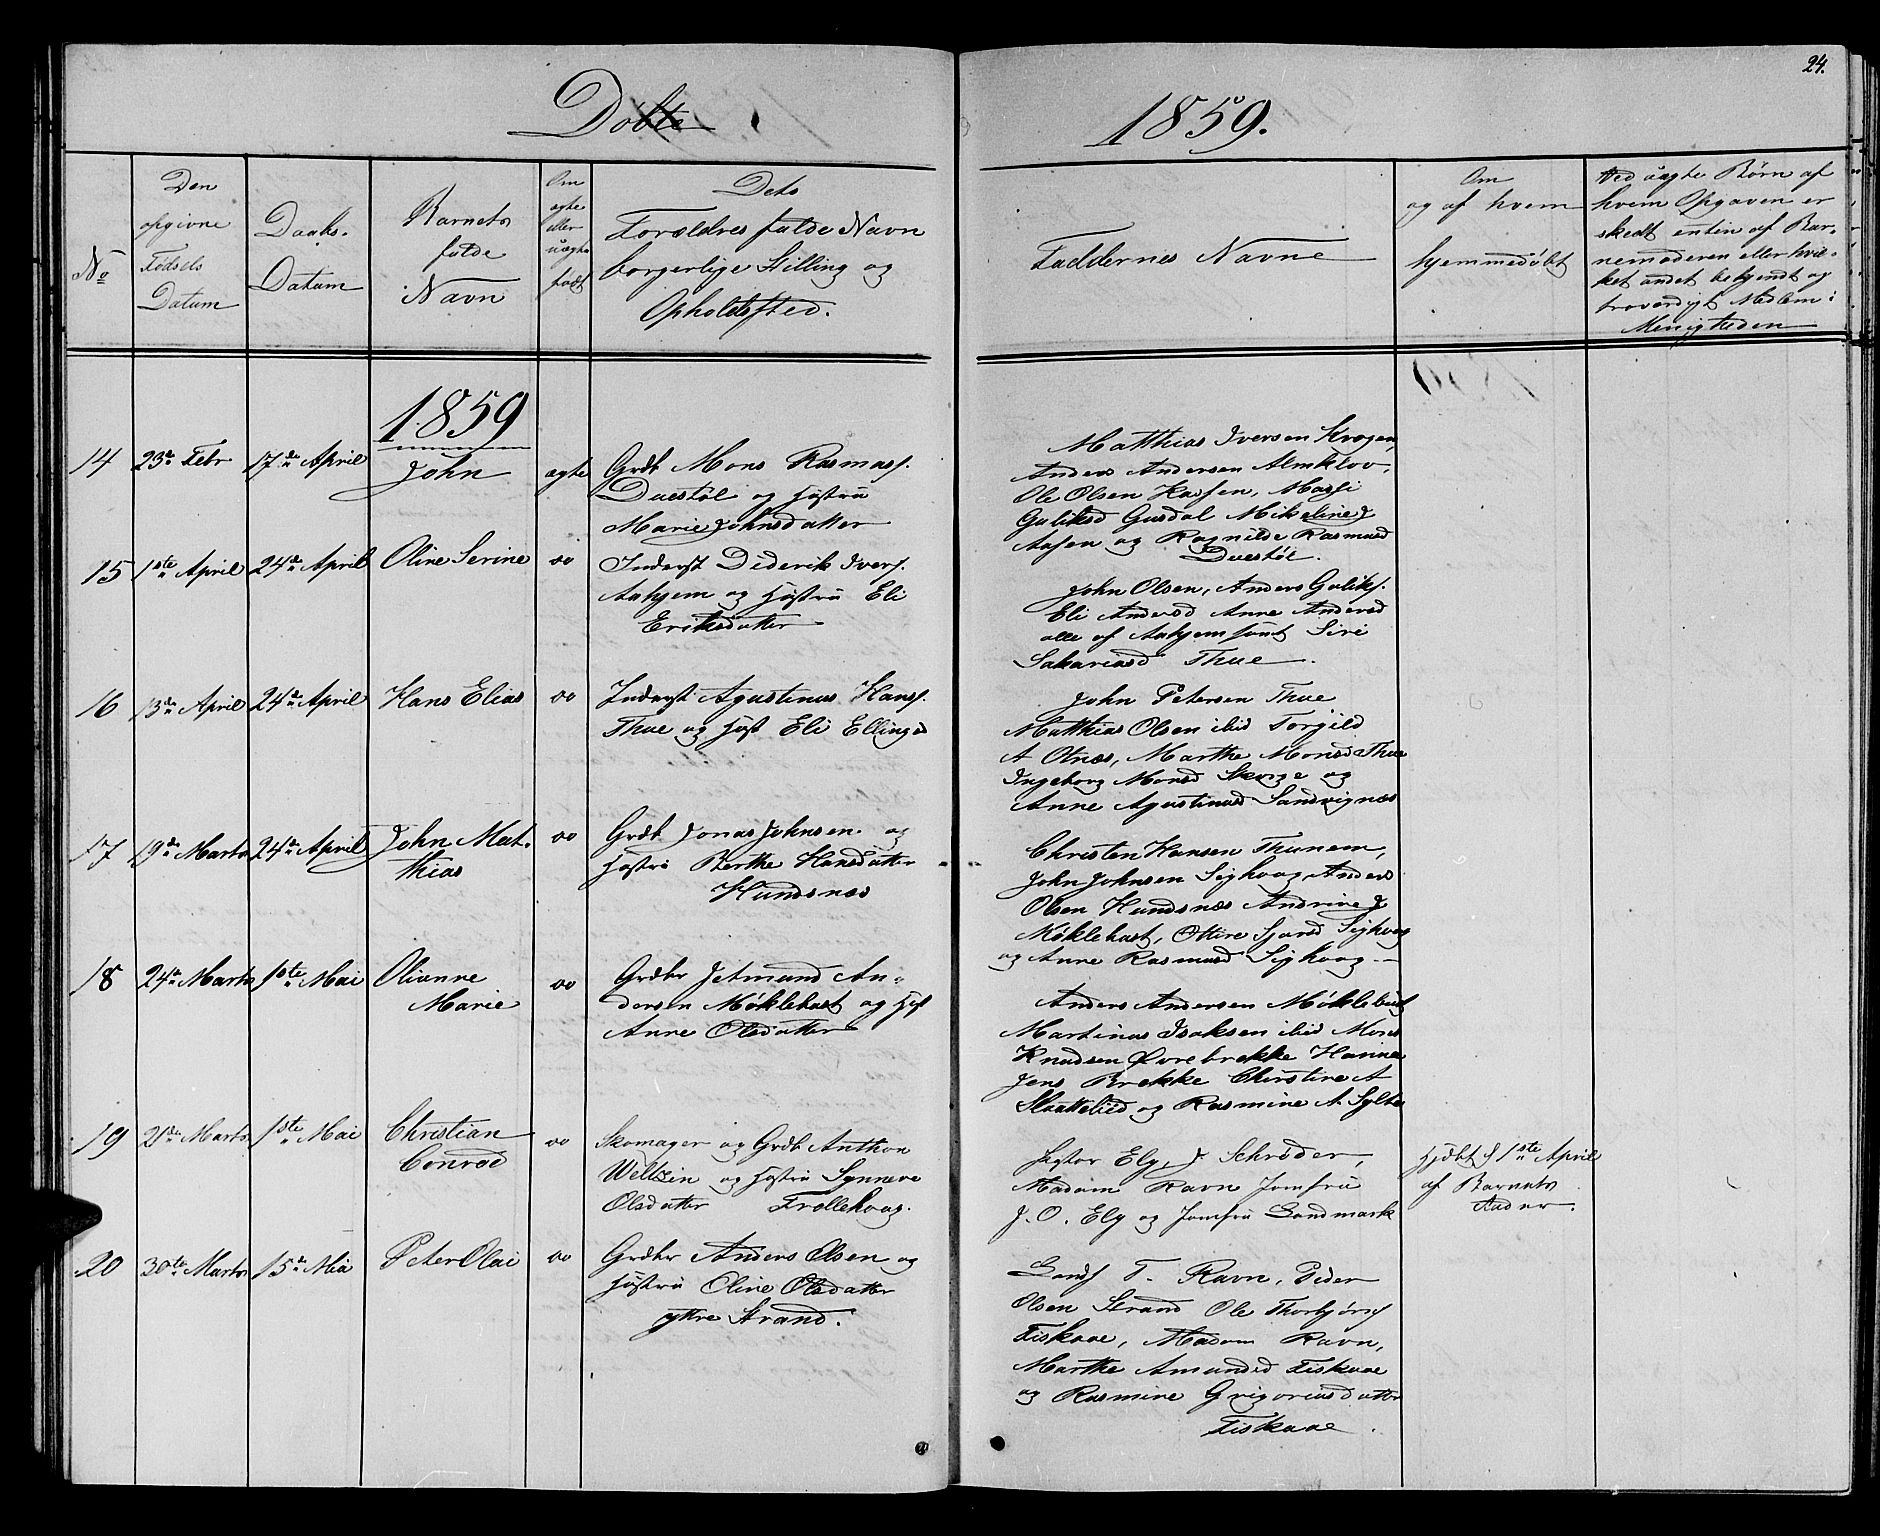 24.
Döbte
1859.
No
Den
opgivne
Fødsels
Datum
Daabs-
Datum
Barnets
fulde
Navn
Om
ægte
eller
uægte
født
Dets
Forældres fulde Navn
borgerlige Stilling og
Opholdssted.
Faddernes Navne
Om
og af hvem
hjemmedøbt
Ved uægte Børn af
hvem Opgaven er
skedt enten af Bar-
nemoderen eller hvil-
ket andet bekjendt og
troværdigt Medlem i
Menigheden
1859
14 23de Febr 17de April John ægte Grdb Mons Rasmuss.
Duestøl og Hustru
Marie Johnsdatter
Matthias Iversen Krogen,
Anders Andersen Almklov,
Ole Olsen Aassen, Massi
Guliksd Gusdal Mikeline J
Aasen og Ragnilde Rasmusd
Duestøl.
15 1ste April 24de April Oline Serine do Inderst Diderik Ivers.
Aahjem og Hustru Eli
Eriksdatter
John Olsen, Anders Guliks.
Eli Andersd Anne Andersd
alle af Aahjem samt Siri
Sakariasd Thue.
16 13de April 24de April Hans Elias do Inderst Agustinus Hans.
Thue og Hust Eli Ellingsd
John Petersen Thue
Matthias Olsen ibid Torgild
A Otnæs, Marthe Monsd Thue
Ingeborg Monsd Skorge og
Anne Agustinusd Sandvignæs
17 19de Marts 24de April John Mat-
thias do Grdb Jonas Johnsen og
Hustru Berthe Hansdatter
Hundsnæs
Christen Hansen Thunem,
John Johnsen Sighoug Anders
Olsen Hundsnæs Andrine J
Møklebust, Ottine Sjursd Sighoug
og Anne Rasmusd Sighoug.
18 24de Marts 1ste Mai Olianne
Marie do Grdbr Jetmund An-
dersen Møklebust og Hust
Anne Olsdatter
Anders Andersen Møklebust
Martinus Isaksen ibid Mons
Knudsen Øvrebrekke Hanna
Jens Brekke Christine A
Slaattelid og Rasmine A Sylte
19 21de Marts 1ste Mai Christian
Conrad do Skomager og Grdb Anthon
Weltzin og Hustru Synneve
Olsdatter Trollehoug.
Pastor Elg, J Schrøder,
Madam Ravn Jomfru
J. O. Elg og Jomfru Landmark
Hjdbt d 1ste April
af Barnets
Fader.
20 30te Marts 15de Mai Peter Olai do Grdbr Anders Olsen og
Hustru Oline Olsdatter
ytre Strand.
T. Ravn, Peder
Olsen Strand Ole Thorbjørns
Fiskaae, Madam Ravn,
Marthe Amundsd Fiskaae
og Rasmine Grigoriusdatter
Fiskaae.